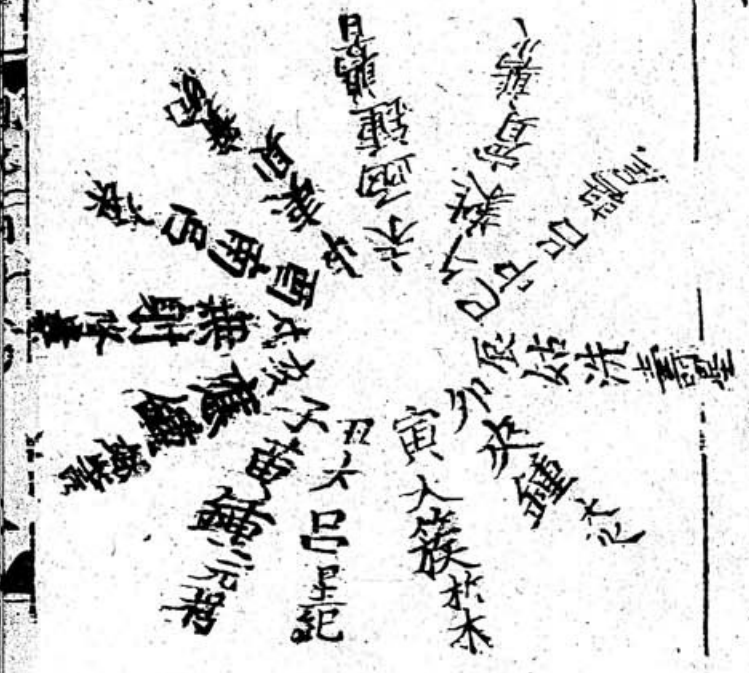 子黃鍾元枵
丑大呂星紀
寅大簇析木
卯夾鍾大火
辰姑洗壽星
巳呂鶉尾
午蕤賓鶉火
未函鍾鶉首
申夷則實沈
酉南呂大梁
戌無射降婁
亥應鍾娵訾